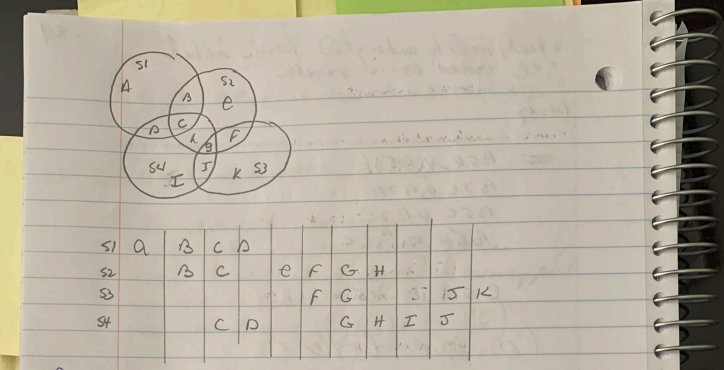 S1
S2
A
B
e
C
D
h
F
g
S4
I
J
K S3
S1 a B C D
S2 B C e F G H
S3 F G J K
S4 C D G H I J